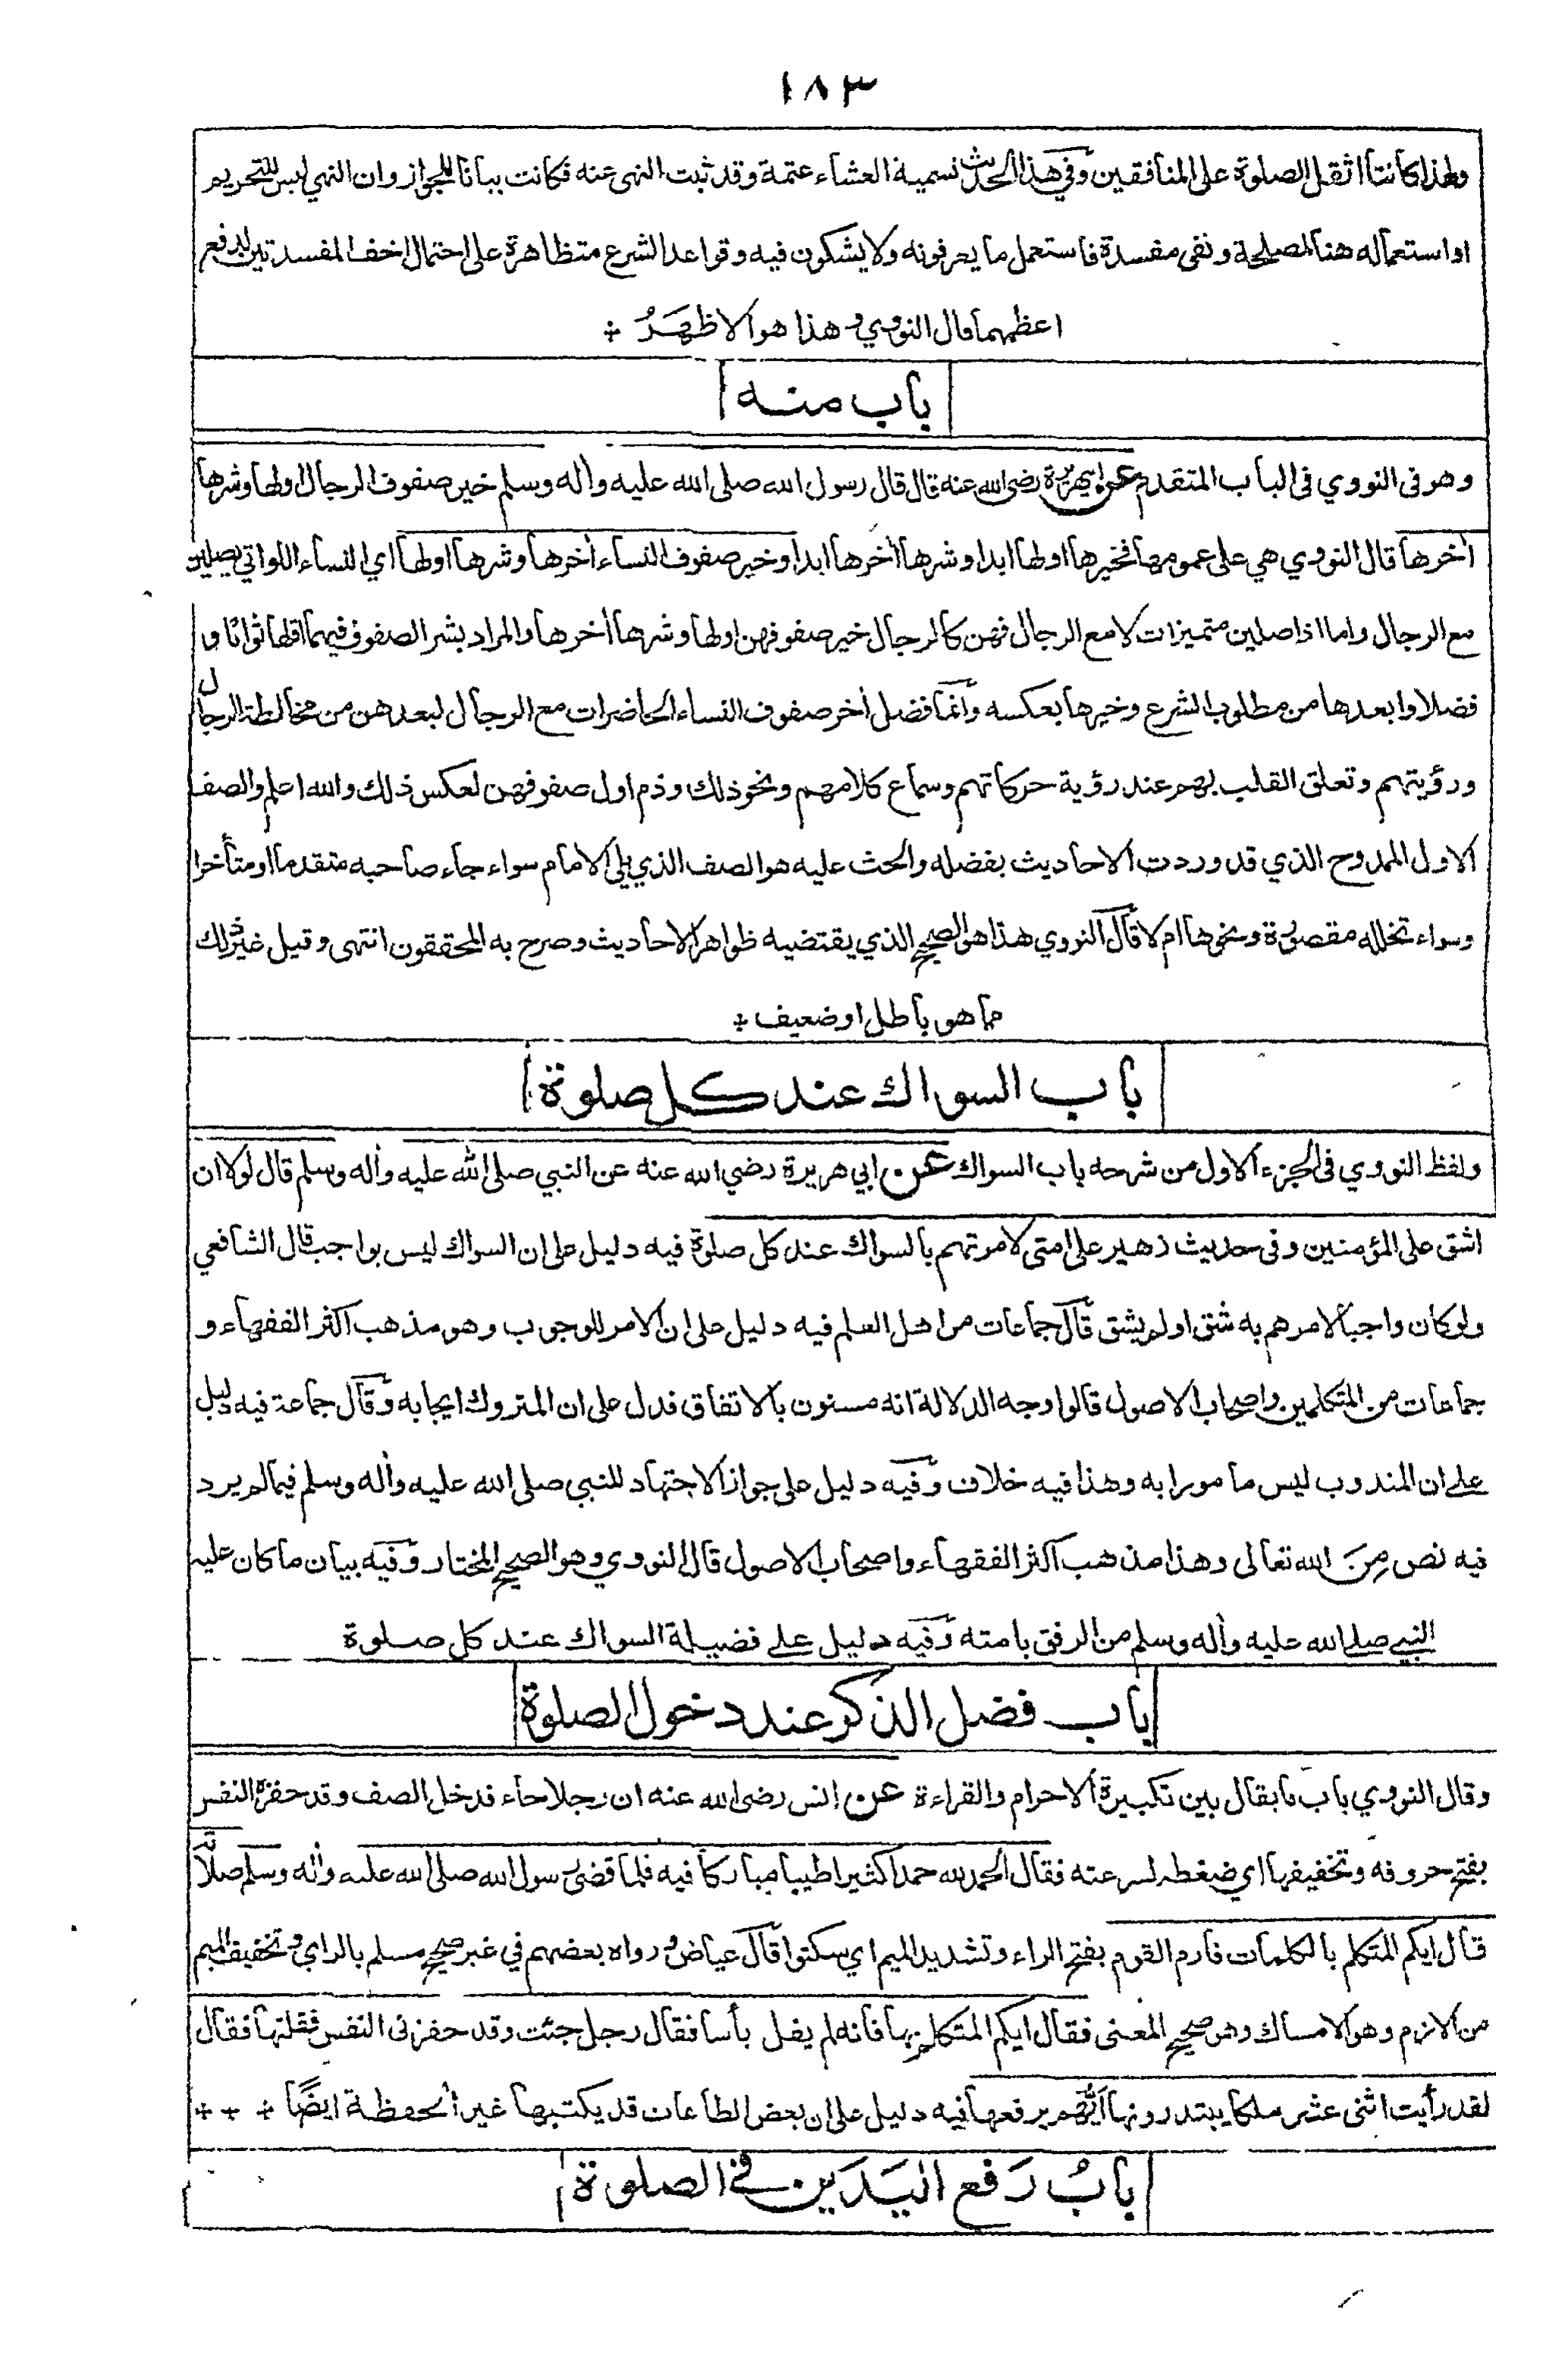 ١٨٣
ولهذا كانتا اثقل الصلوة على المنافقين وفي هذا الحديث تسمية العشاء عتمة وقد ثبت النهى عنه فكانت بيانا للجواز وان النهي ليس للتحريم
او استعماله هنا لمصلحة ونفى مفسدة فاستعمل ما يعرفونه ولا يشكون فيه وقواعد الشرع متظاهرة على احتمال اخف المفسدتين لدفع
اعظمهما قال النووي وهذا هو الاظهَرُ ❊
باب منه
وهو فى النووي فى الباب المتقدم عن ابي هريرة رضي الله عنه قال قال رسول الله صلى الله عليه واٰله وسلم خير صفوف الرجال اولها وشرها
اٰخرها قال النووي هي على عمومها فخيرها اولها ابدا وشرها اٰخرها ابدا وخير صفوف النساء اٰخرها وشرها اولها اي النساء اللواتي يصلين
مع الرجال واما اذا صلين متميزات لا مع الرجال فهن كالرجال خير صفوفهن اولها وشرها اٰخرها والمراد بشر الصفوف فيهما اقلها ثوابًا و
فضلا وابعدها من مطلوب الشرع وخيرها بعكسه وانما فضل اٰخر صفوف النساء الحاضرات مع الرجال لبعدهن من مخالطة الرجال
ورؤيتهم وتعلق القلب بهم عند رؤية حركاتهم وسماع كلامهم ونحو ذلك وذم اول صفوفهن لعكس ذلك والله اعلم والصف
الاول الممدوح الذي قد وردت الاحاديث بفضله والحث عليه هو الصف الذي يلي الامام سواء جاء صاحبه متقدما او متأخرا
وسواء تخلله مقصورة ونحوها ام لا قال النووي هذا هو الصحيح الذي يقتضيه ظواهر الاحاديث وصرح به المحققون انتهى وقيل غير ذلك
مما هو باطل او ضعيف ❊
باب السواك عند كل صلوة
ولفظ النووي فى الجزء الاول من شرحه باب السواك عن ابي هريرة رضي الله عنه عن النبي صلى الله عليه واٰله وسلم قال لولا ان
اشق على المؤمنين وفى حديث زهير على امتى لامرتهم بالسواك عند كل صلوة فيه دليل على ان السواك ليس بواجب قال الشافعي
ولو كان واجبا لامرهم به شق او لم يشق قال جماعات من اهل العلم فيه دليل على ان الامر للوجوب وهو مذهب اكثر الفقهاء و
جماعات من المتكلمين واصحاب الاصول قالوا وجه الدلالة انه مسنون بالاتفاق فدل على ان المتروك ايجابه وقال جماعة فيه دليل
على ان المندوب ليس مامورا به وهذا فيه خلاف وفيه دليل على جواز الاجتهاد للنبي صلى الله عليه واٰله وسلم فيما لم يرد
فيه نص مِنَ الله تعالى وهذا مذهب اكثر الفقهاء واصحاب الاصول قال النووي وهو الصحيح المختار وفيه بيان ما كان عليه
النبي صلى الله عليه واٰله وسلم من الرفق بامته وفيه دليل على فضيلة السواك عند كل صلوة
باب فضل الذكر عند دخول الصلوة
وقال النووي باب ما يقال بين تكبيرة الاحرام والقراءة عن انس رضى الله عنه ان رجلا جاء فدخل الصف وقد حفزه النفس
بفتح حروفه وتخفيفها اي ضغطه لسرعته فقال الحمد لله حمدا كثيرا طيبا مباركا فيه فلما قضى رسول الله صلى الله عليه واٰله وسلم صلاته
قال ايكم المتكلم بالكلمات فارم القوم بفتح الراء وتشديد الميم اي سكتوا قال عياض ورواه بعضهم في غير صحيح مسلم بالزاي وتخفيف الميم
من الازم وهو الامساك وهو صحيح المعنى فقال ايكم المتكلم بها فانه لم يقل بأسا فقال رجل جئت وقد حفزنى النفس فقلتها فقال
لقد رأيت اثنى عشر ملكا يبتدرونها اَيُّهم يرفعها فيه دليل على ان بعض الطاعات قد يكتبها غير الحفظة ايضًا ❊ ❊ ❊
بابُ رَفع اليَدَين في الصلوة